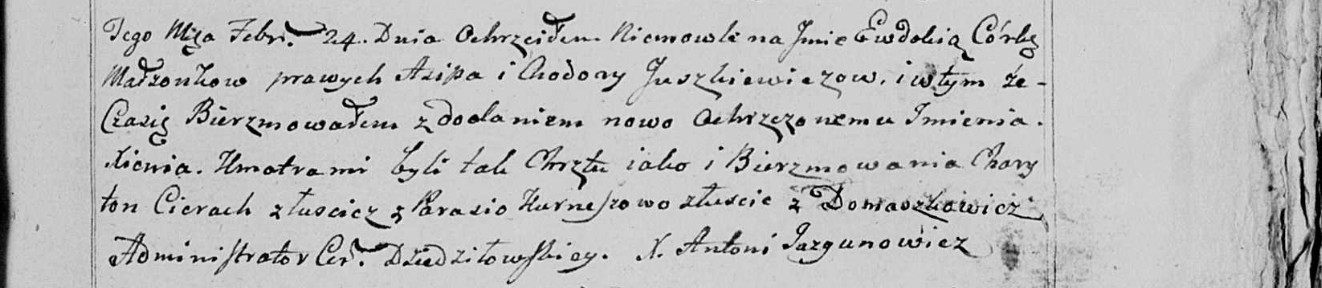 Tego Mca Febr. 24. Dnia Ochrzciłem Niemowle na Imie Ewdokią Córkę
Małżonkow prawych Asipa i Chodory Juszkiewiczow, i w tym że-
Czasię Bierzmowałem z dodaniem nowo Ochrzczonemu Imienia.
Xienia. Kmotrami byli tak Chrztu iako i Bierzmowania Chary
ton Cierach z Parasio z Domaszkowicz
Administrator Cer. Dziedziłowskiey. X. Antoni Jazgunowicz